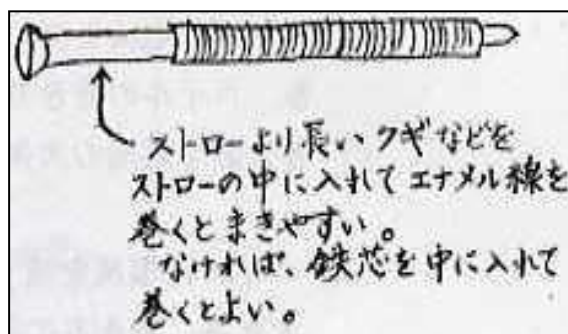 ストローより長いクギなどを
ストローの中に入れてエナメル線を
巻くとまきやすい。
なければ、鉄芯を中に入れて
巻くとよい。